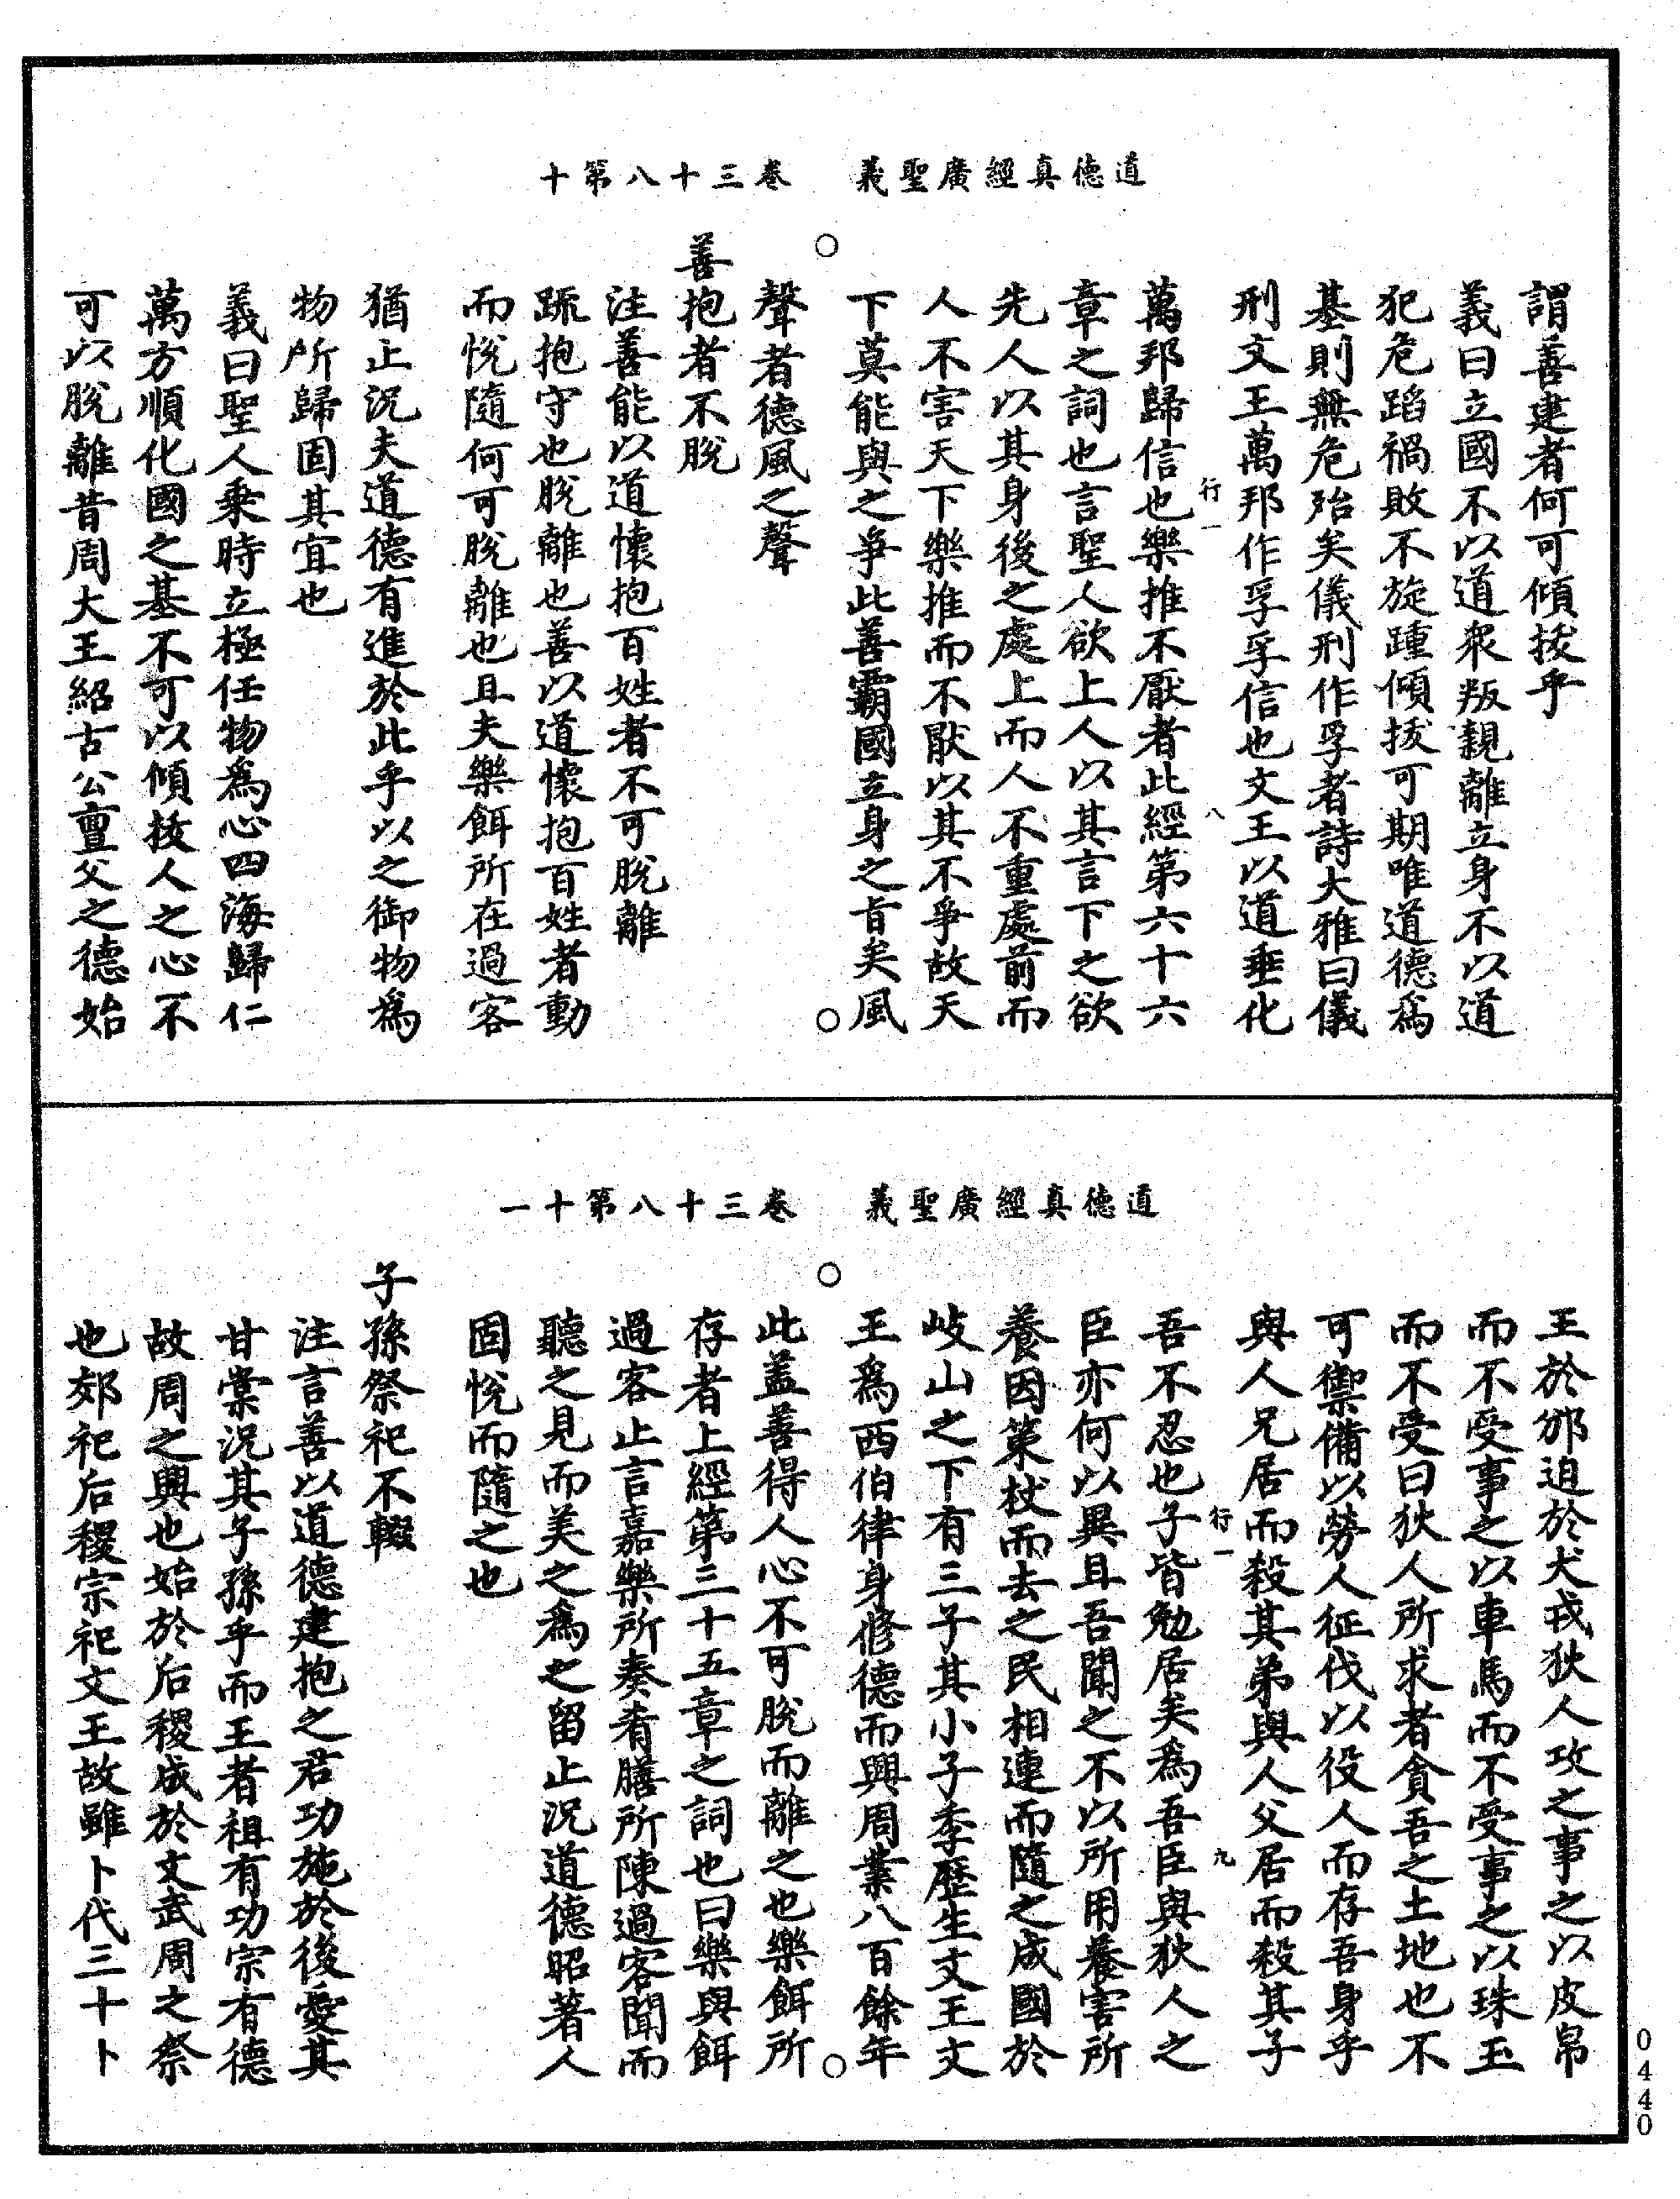 道德真經廣聖義　卷三十八第十
謂善建者何可傾拔乎
義曰立國不以道衆叛親離立身不以道
犯危蹈禍敗不旋踵傾拔可期唯道德爲
基則無危殆矣儀刑作孚者詩大雅曰儀
刑文王萬邦作孚孚信也文王以道垂化
行一　八
萬邦歸信也樂推不厭者此經第六十六
章之詞也言聖人欲上人以其言下之欲
先人以其身後之處上而人不重處前而
人不害天下樂推而不厭以其不爭故天
下莫能與之爭此善霸國立身之旨矣風
聲者德風之聲
善抱者不脫
注善能以道懷抱百姓者不可脫離
疏抱守也脫離也善以道懷抱百姓者動
而悅隨何可脫離也且夫樂餌所在過客
猶止況夫道德有進於此乎以之御物爲
物所歸固其宜也
義曰聖人乘時立極任物爲心四海歸仁
萬方順化國之基不可以傾拔人之心不
可以脫離昔周大王紹古公亶父之德始
道德真經廣聖義　卷三十八第十一
王於邠迫於犬戎狄人攻之事之以皮帛
而不受事之以車馬而不受事之以珠玉
而不受曰狄人所求者貪吾之土地也不
可禦備以勞人征伐以役人而存吾身乎
與人兄居而殺其弟與人父居而殺其子
行一　九
吾不忍也子皆勉居矣爲吾臣與狄人之
臣亦何以異且吾聞之不以所用養害所
養因策杖而去之民相連而隨之成國於
岐山之下有三子其小子季歷生文王文
王爲西伯律身修德而興周業八百餘年
此蓋善得人心不可脫而離之也樂餌所
存者上經第三十五章之詞也曰樂與餌
過客止言嘉樂所奏肴膳所陳過客聞而
聽之見而美之爲之留止況道德昭著人
固悅而隨之也
子孫祭祀不輟
注言善以道德建抱之君功施於後愛其
甘棠況其子孫乎而王者祖有功宗有德
故周之興也始於后稷成於文武周之祭
也郊祀后稷宗祀文王故雖卜代三十卜
0440